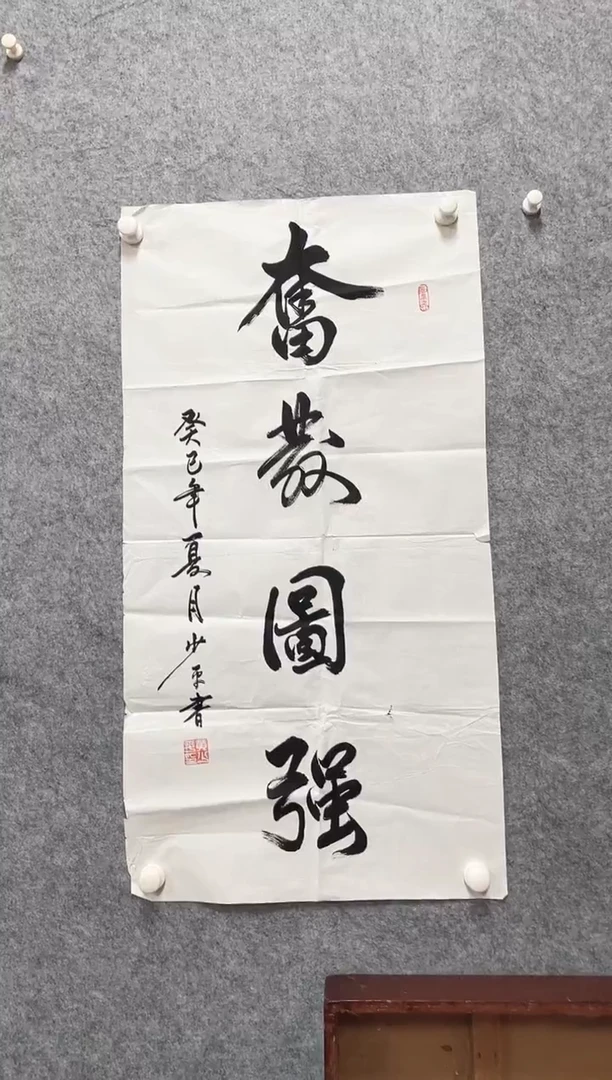 奮發圖强
癸巳年夏月少平書